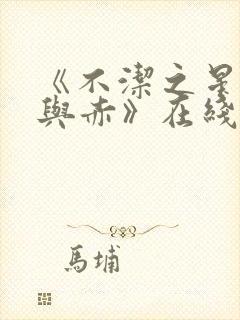 《不潔之星
與赤》在綫
馬埔